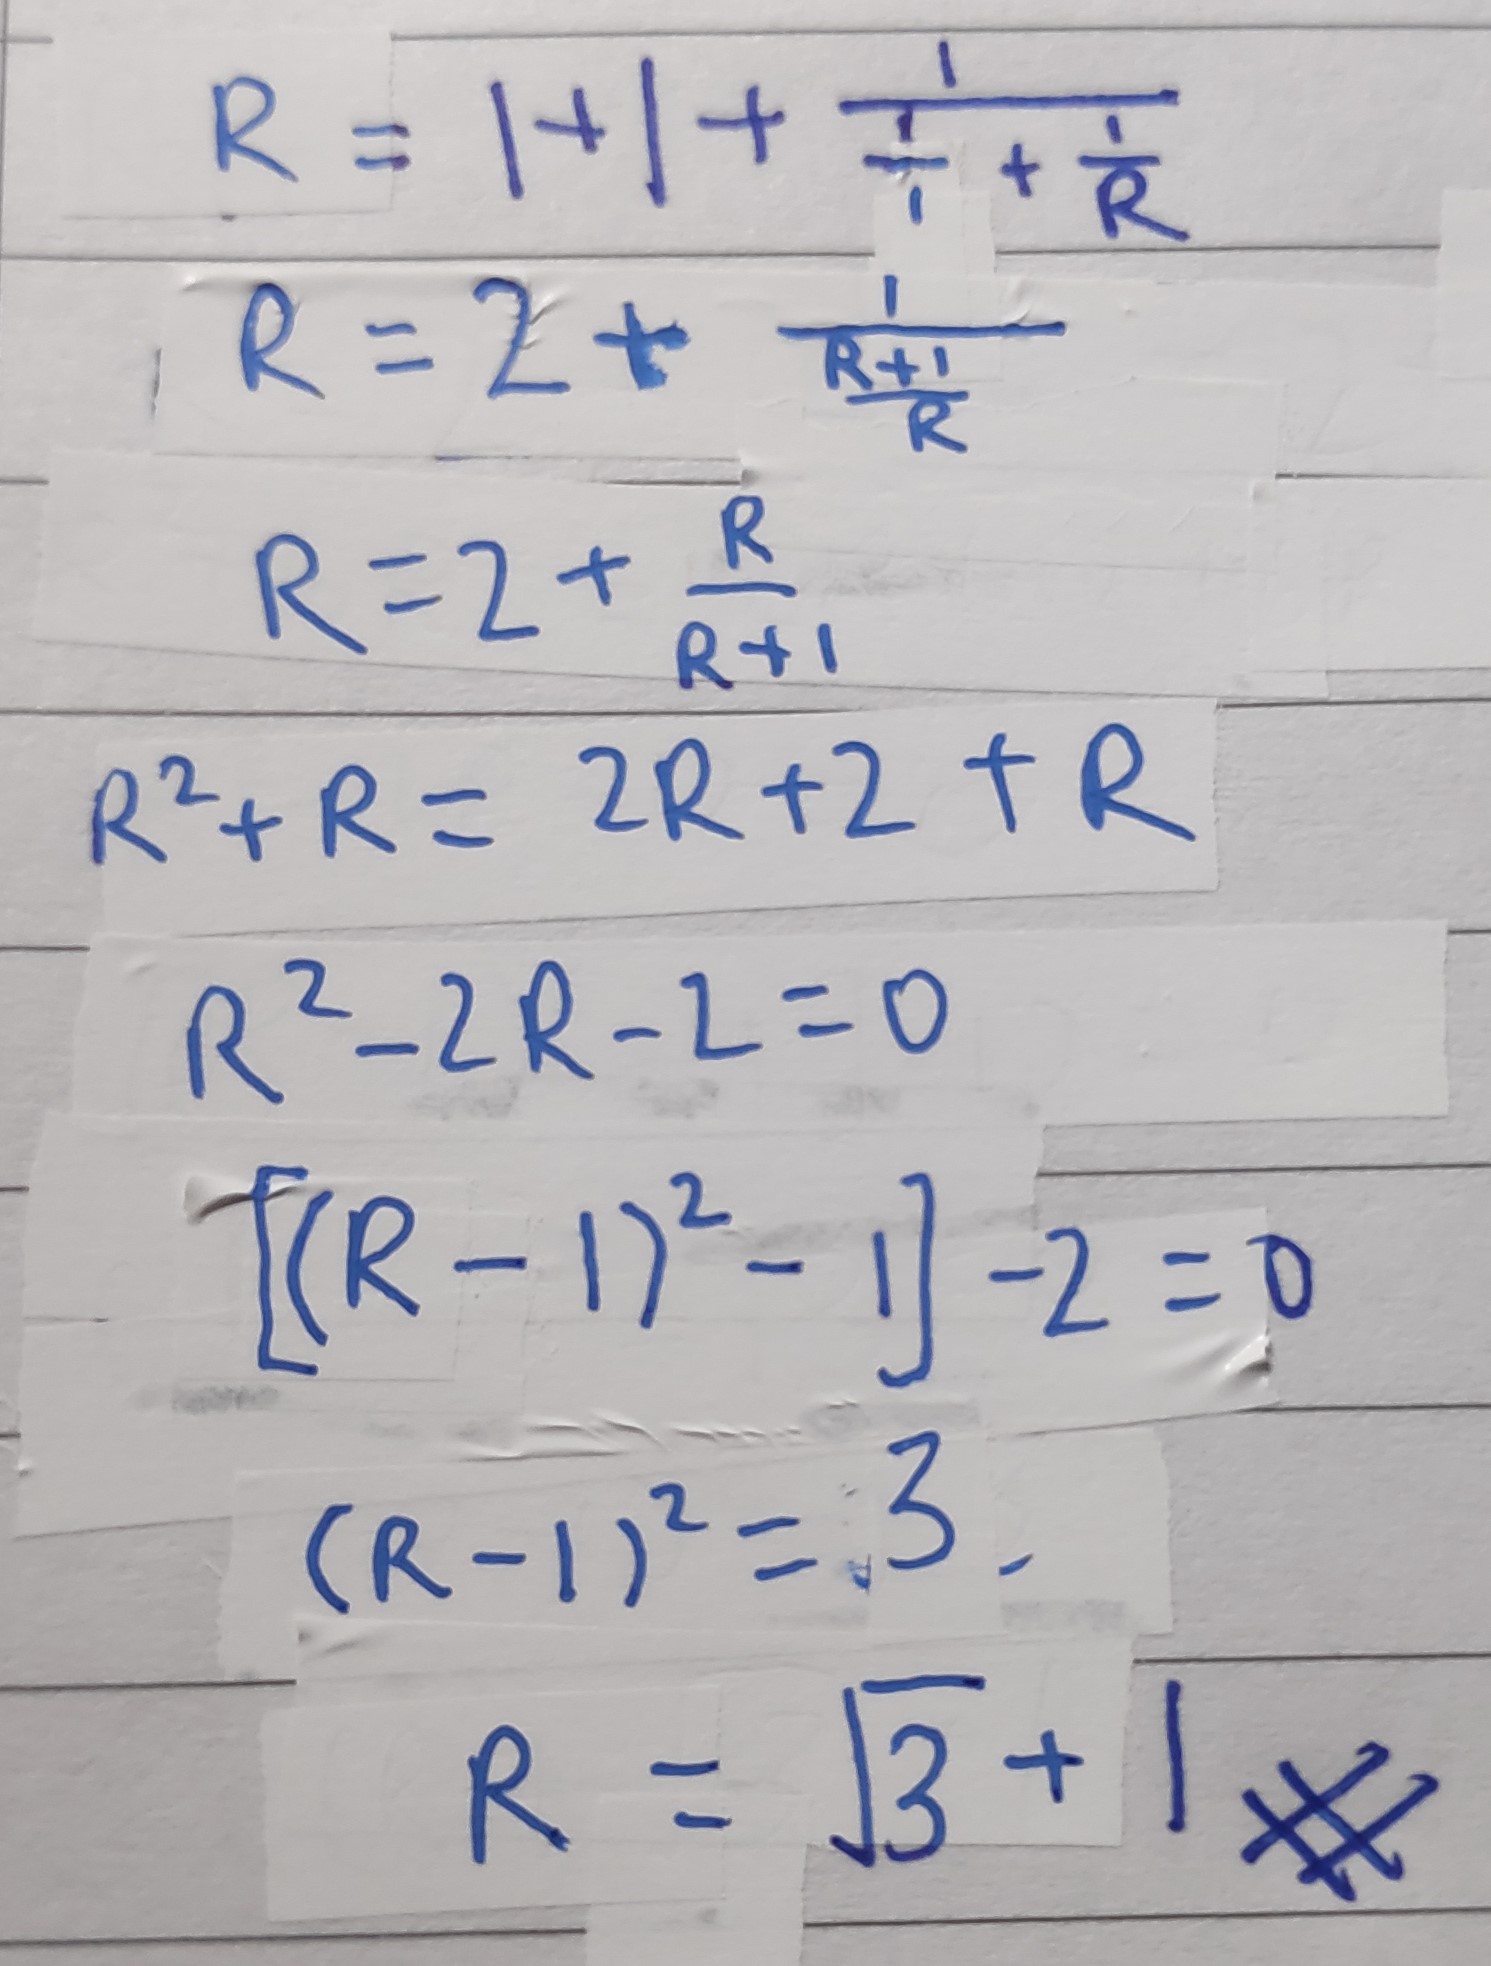 R = 1 + 1 + 1/(1/1 + 1/R)
R = 2 + 1/((R+1)/R)
R = 2 + R/(R+1)
R² + R = 2R + 2 + R
R² - 2R - 2 = 0
[(R - 1)² - 1] - 2 = 0
(R - 1)² = 3.
R = √3 + 1